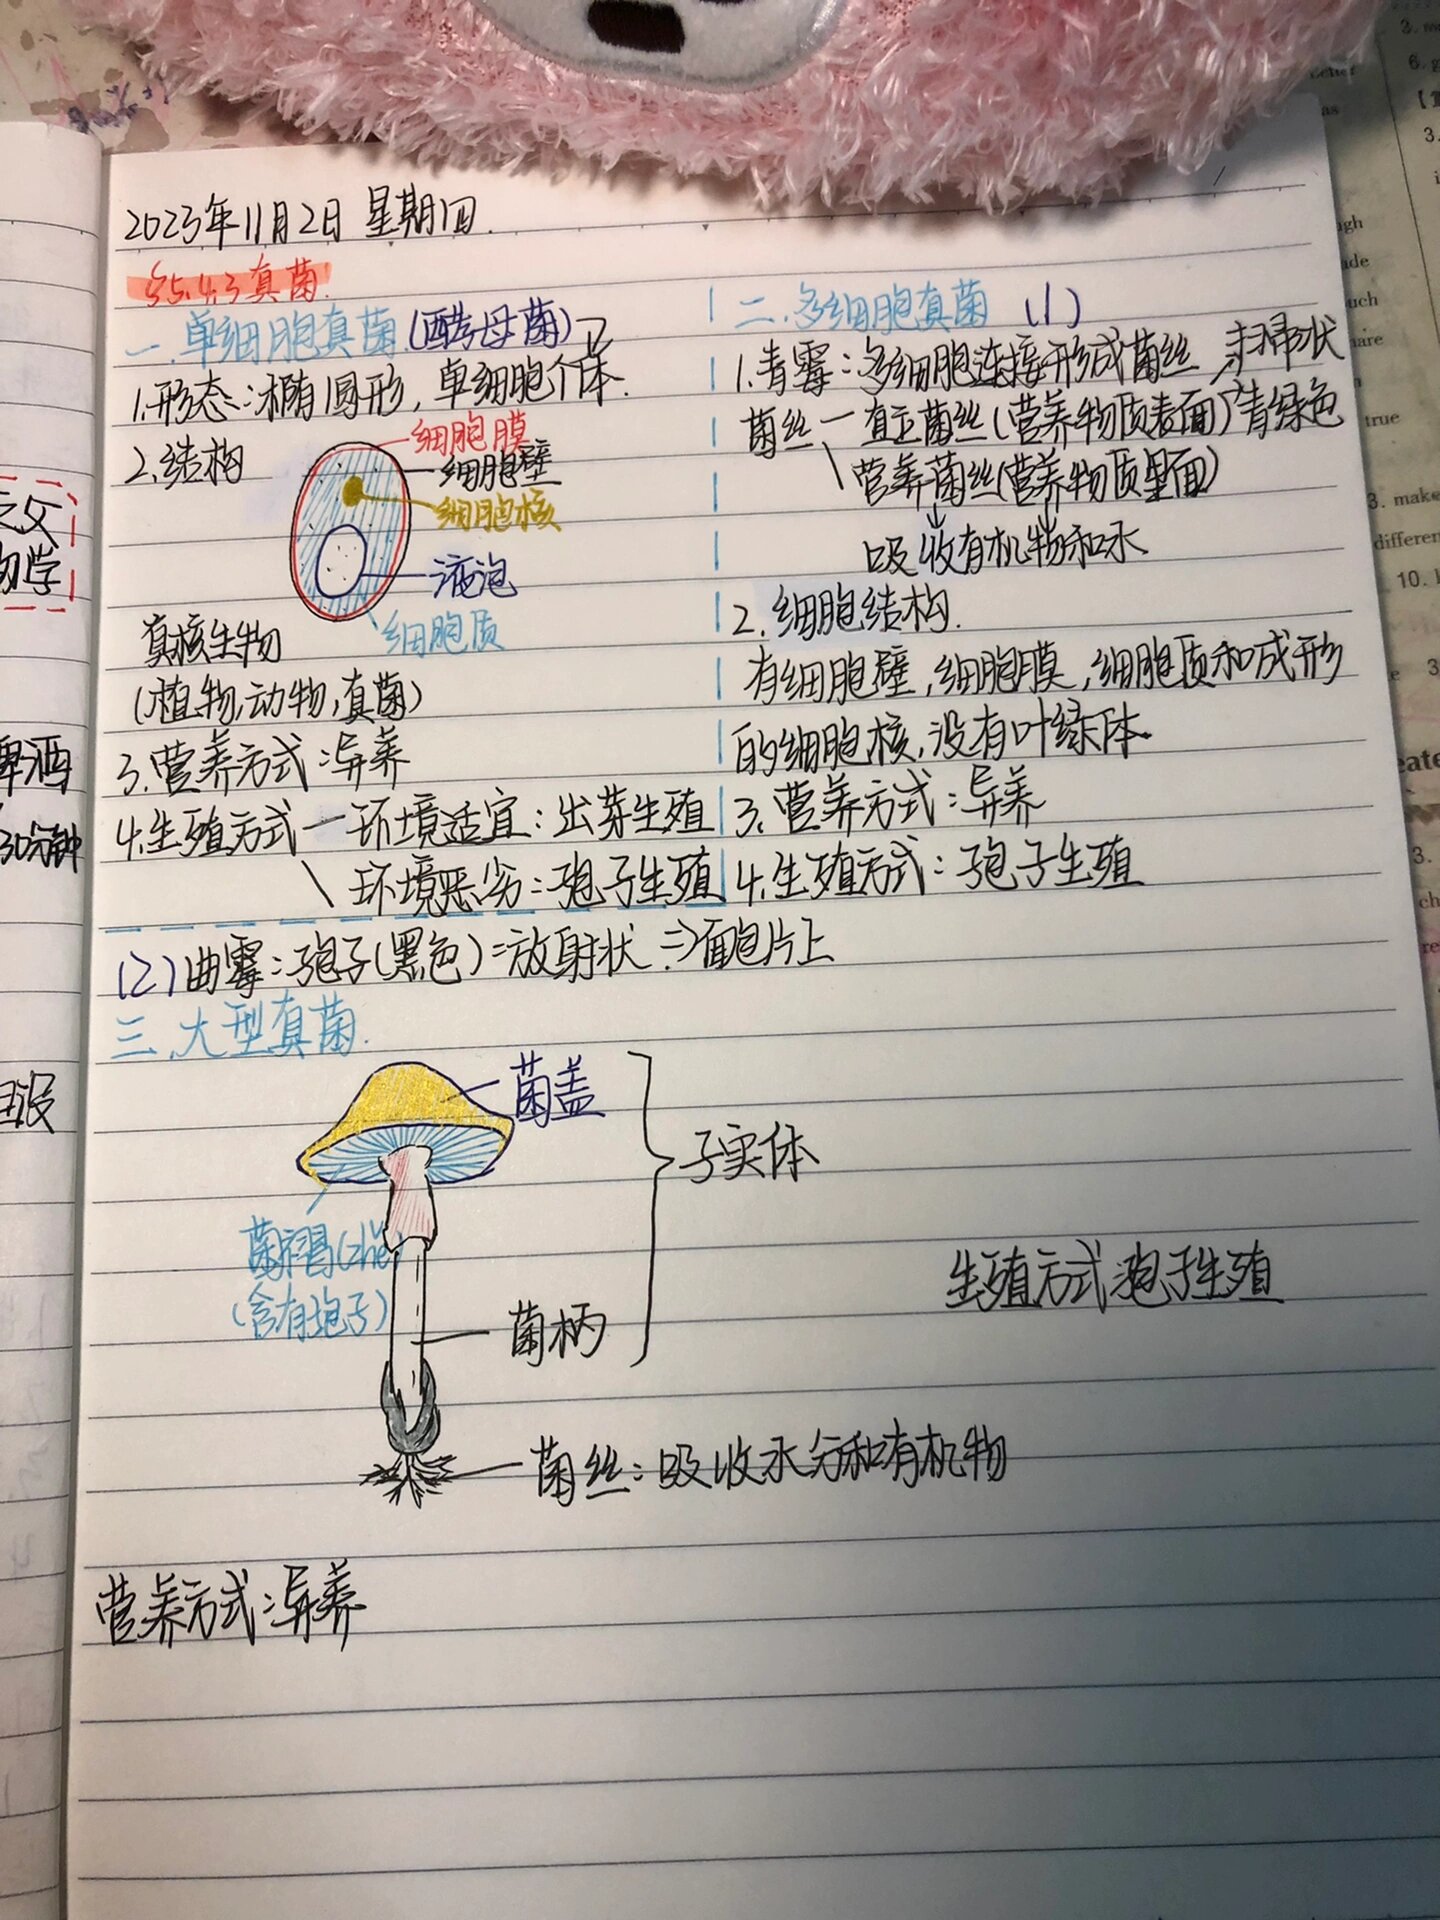 2023年11月2日 星期四.
§5.4.3真菌.
一.单细胞真菌(酵母菌)
1.形态:椭圆形,单细胞个体.
2.结构
细胞膜
细胞壁
细胞核
液泡
细胞质
真核生物
(植物,动物,真菌)
3.营养方式:异养
4.生殖方式—环境适宜:出芽生殖
环境恶劣:孢子生殖
二.多细胞真菌 (1)
1.青霉:多细胞连接形成菌丝 扫帚状
菌丝—直立菌丝(营养物质表面)青绿色
营养菌丝(营养物质里面)
吸收有机物和水
2.细胞结构.
有细胞壁,细胞膜,细胞质和成形
的细胞核,没有叶绿体.
3.营养方式:异养
4.生殖方式:孢子生殖
(2)曲霉:孢子(黑色):放射状⇒面包片上
三.大型真菌.
菌盖
子实体
菌褶(zhě)
(含有孢子)
菌柄
生殖方式:孢子生殖
菌丝:吸收水分和有机物
营养方式:异养
物学
啤酒
30分钟
make
differen
10.
true